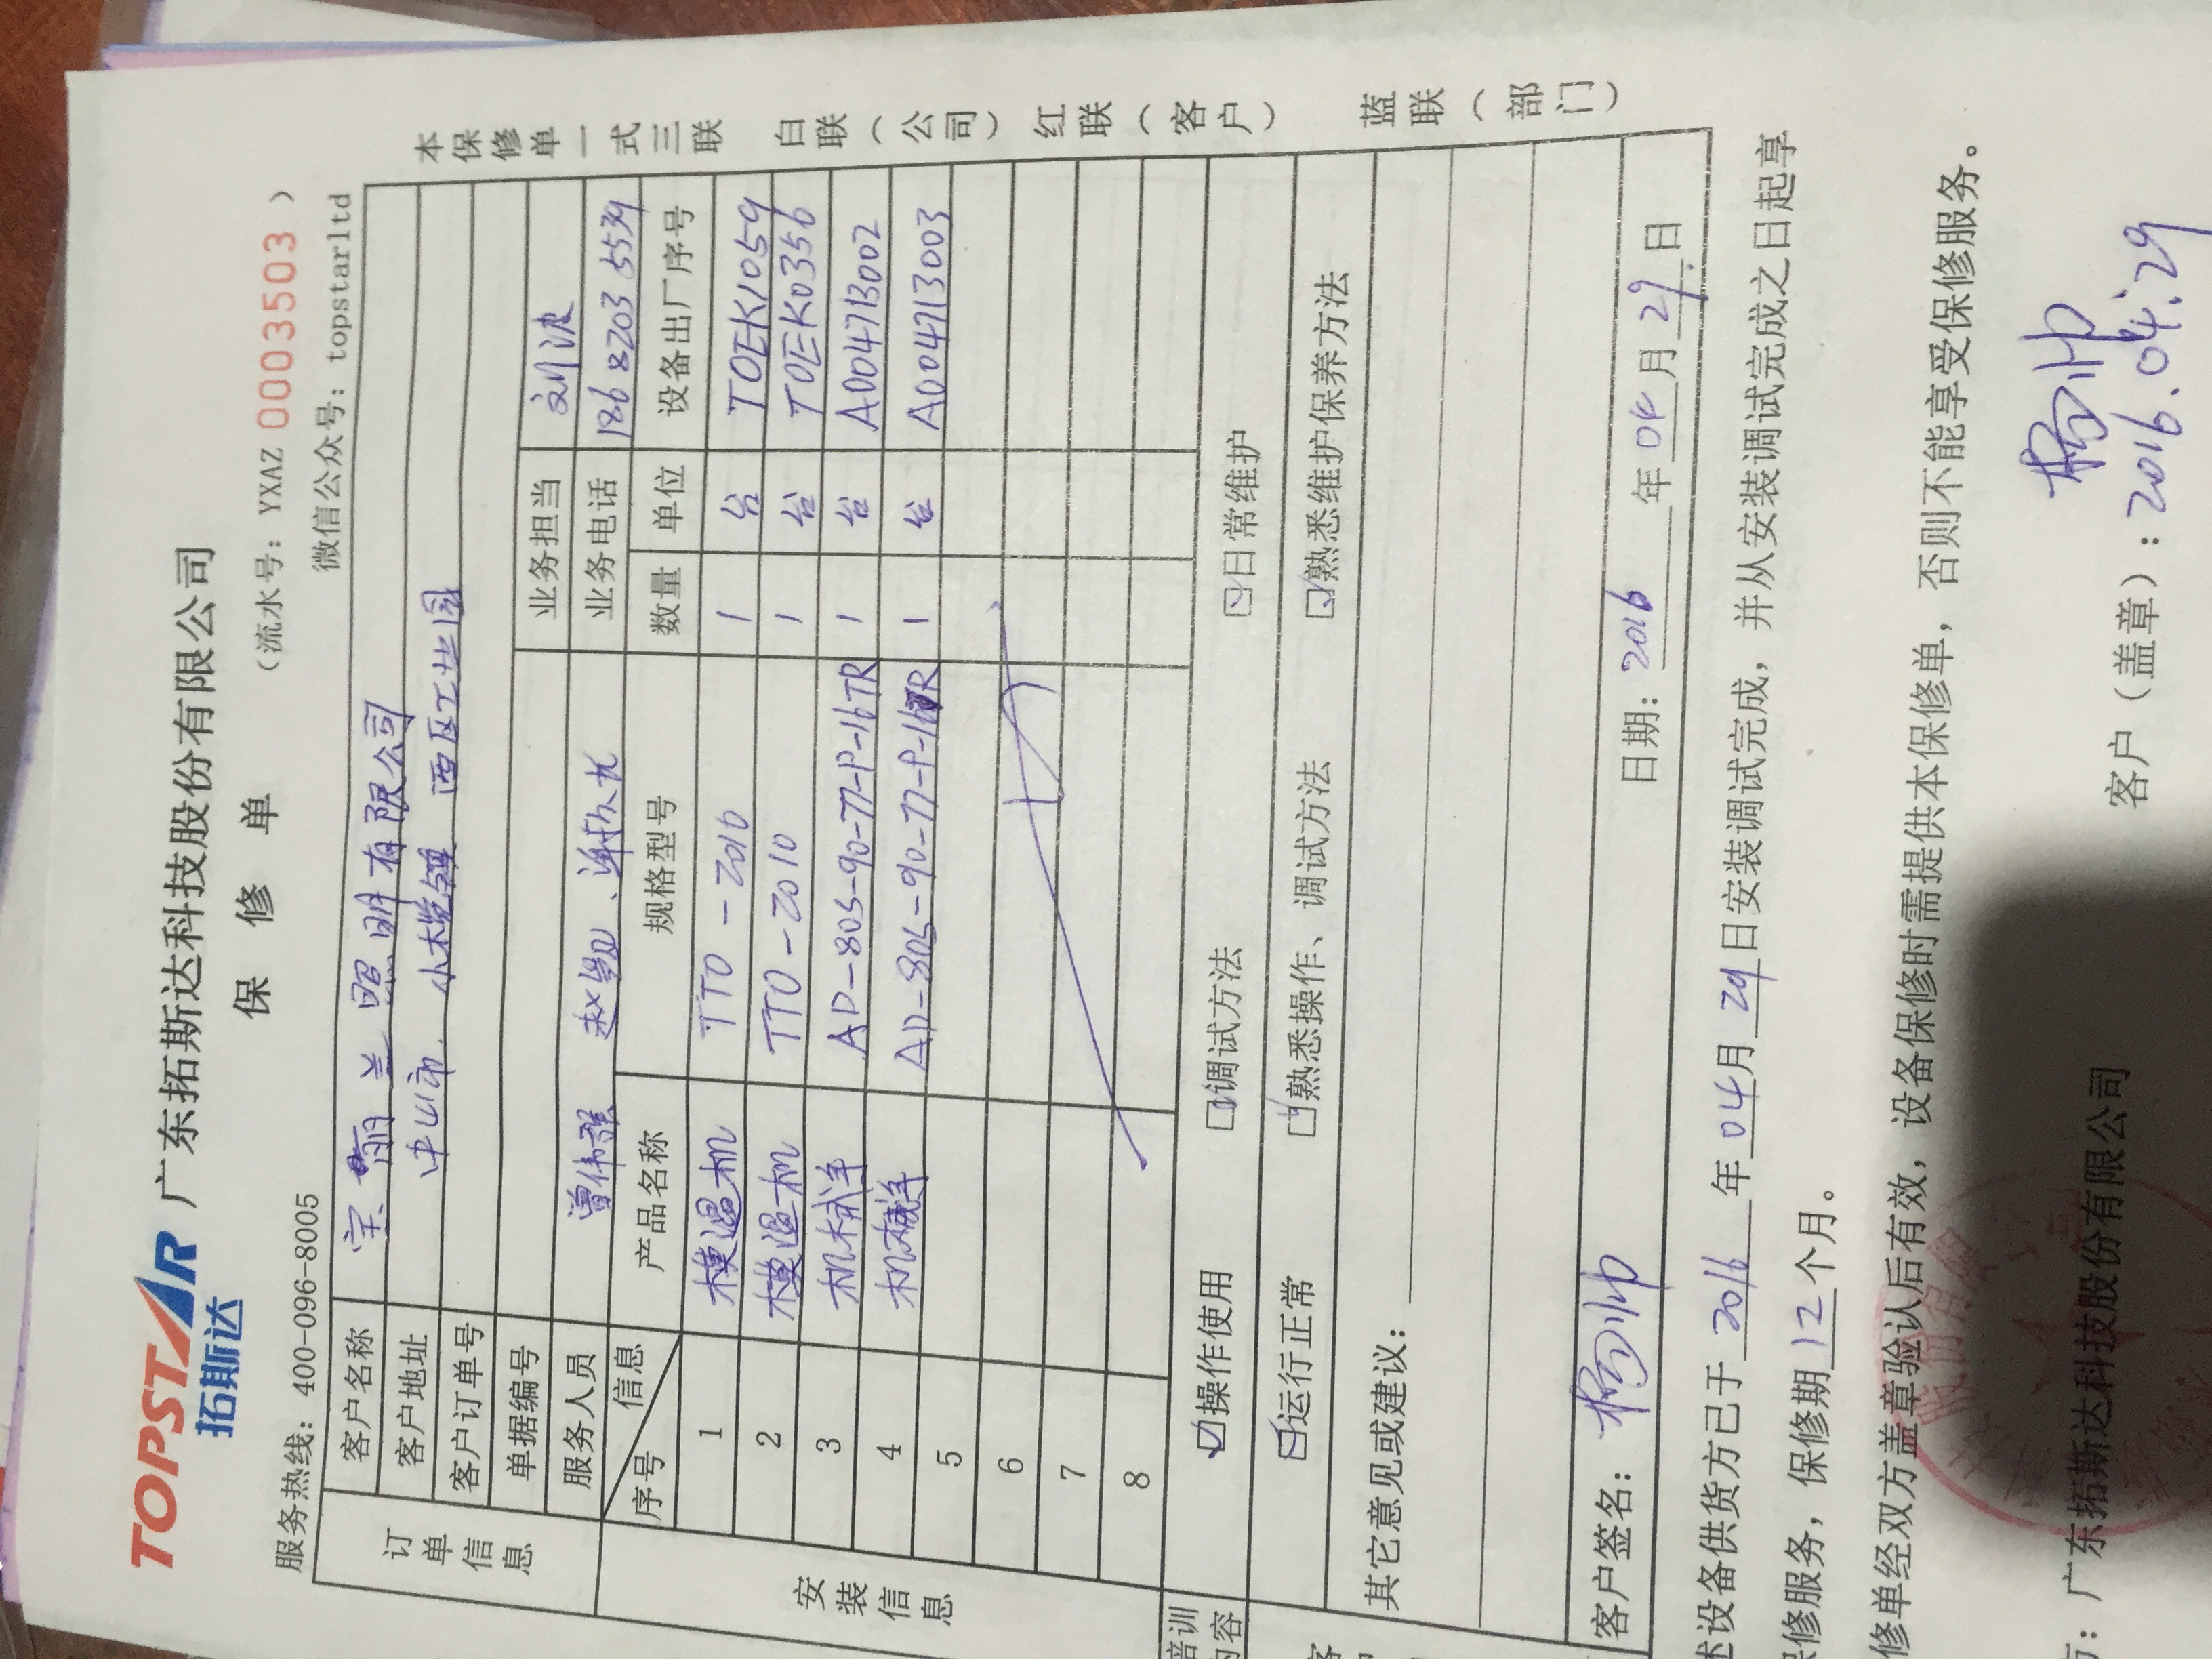 TOPSTAR 广东拓斯达科技股份有限公司
拓斯达
保 修 单
(流水号: YXAZ 0003503)
服务热线: 400-096-8005
微信公众号: topstarltd
订单信息
客户名称 宝丽兰照明有限公司
客户地址 中山市.小榄镇 西区工业园
客户订单号
单据编号 业务担当 刘波
服务人员 曾伟强 、 业务电话 186 8203 5539
安装信息
序号 信息 产品名称 规格型号 数量 单位 设备出厂序号
1 模温机 TTO-2016 1 台 TOEK1059
2 模温机 TTO-2010 1 台 TOEK0356
3 机械手 AP-80S-90-77-P-16TR 1 台 A004713002
4 机械手 AP-80S-90-77-P-16TR 1 台 A004713003
5
6
7
8
培训内容 ☑操作使用 ☑调试方法 ☑日常维护
客 ☑运行正常 ☑熟悉操作、调试方法 ☑熟悉维护保养方法
其它意见或建议:
客户签名: 杨帅 日期: 2016 年 04 月 29 日
述设备供货方已于 2016 年 04 月 29 日安装调试完成, 并从安装调试完成之日起享
保修服务, 保修期 12 个月。
修单经双方盖章验认后有效, 设备保修时需提供本保修单, 否则不能享受保修服务。
方: 广东拓斯达科技股份有限公司 客户(盖章): 杨帅
2016.04.29
本保修单一式三联 白联(公司) 红联(客户) 蓝联(部门)